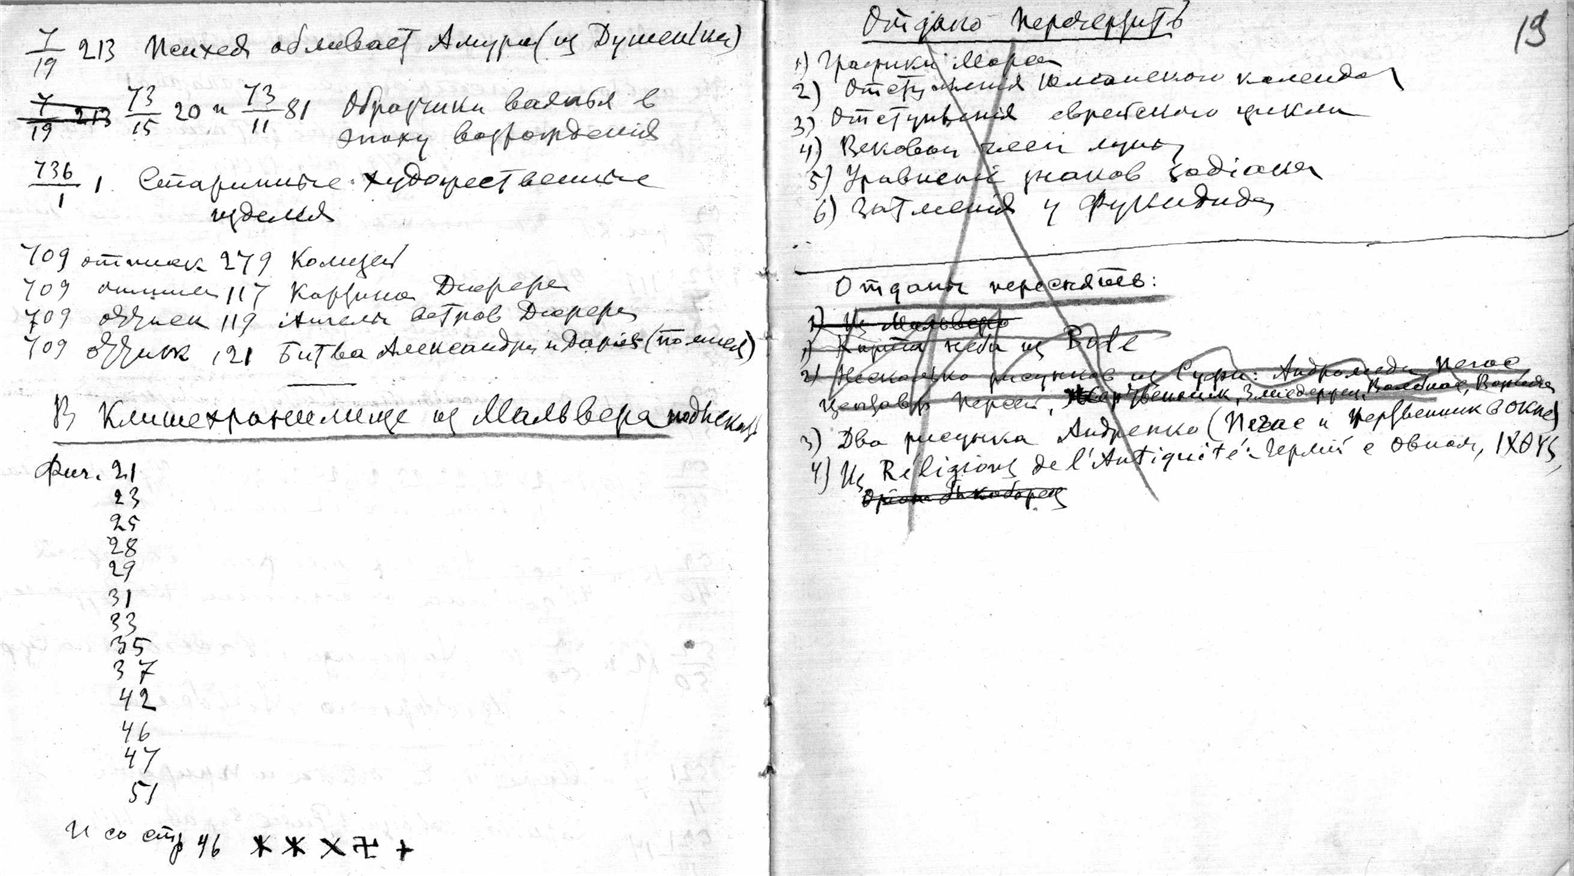 7/19 213 Психея обливает Амура (из Душеньки)
7/19 213 73/15 20 и 73/11 81 Образчики ваянья в
эпоху возрождения
736/1 1. Старинные художественные
изделия
709 оттиск 279 Колизей
709 оттиск 117 Картина Дюрера
709 оттиск 119 Ангелы ветров Дюрера
709 оттиск 121 Битва Александра и Дария (помпея)
В Клишехранилище из Мальвера
Фиг. 21
23
25
28
29
31
33
35
37
42
46
47
51
И со стр 46 Ж Ж X 卐 +
19
Отдано перечертить
1) Графики Мореа
2) Отступления Юлианского календаря
3) Отступления еврейского цикла
4) Вековой член луны
5) Уравнения знаков зодіака
6) Затмения у Фукидида
Отданы переснять:
1) Из Мальвера
1) Карта неба из Bode
2) Несколько рисунков из Суфи: Андромеда Пегас
Центавр Персей, Змиедержец, Волопас,
3) Два рисунка Андренко (Пегас и в окне)
4) Из Réligions de l'Antiquité: Гермий с овном, ΙΧΘΥΣ,